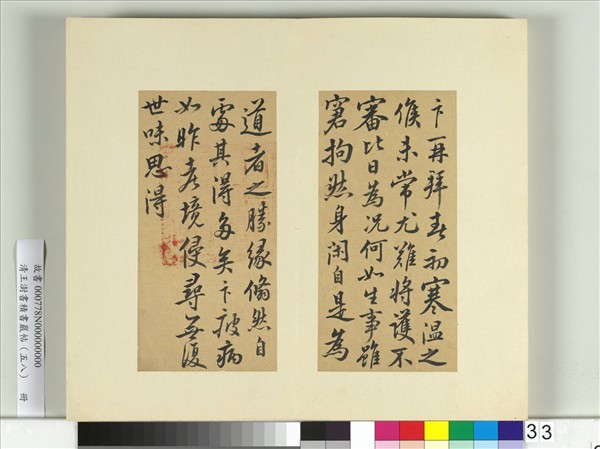 卞再拜春初寒温之
候未常尤難将護不
審比日為況何如生事雖
窘拘然身闲自是為
道者之勝緣翛然自
處其得多矣卞被病
如昨老境侵尋無復
世味思得
故書000778N00000000
清王澍書積書巖帖(五八) 冊
33